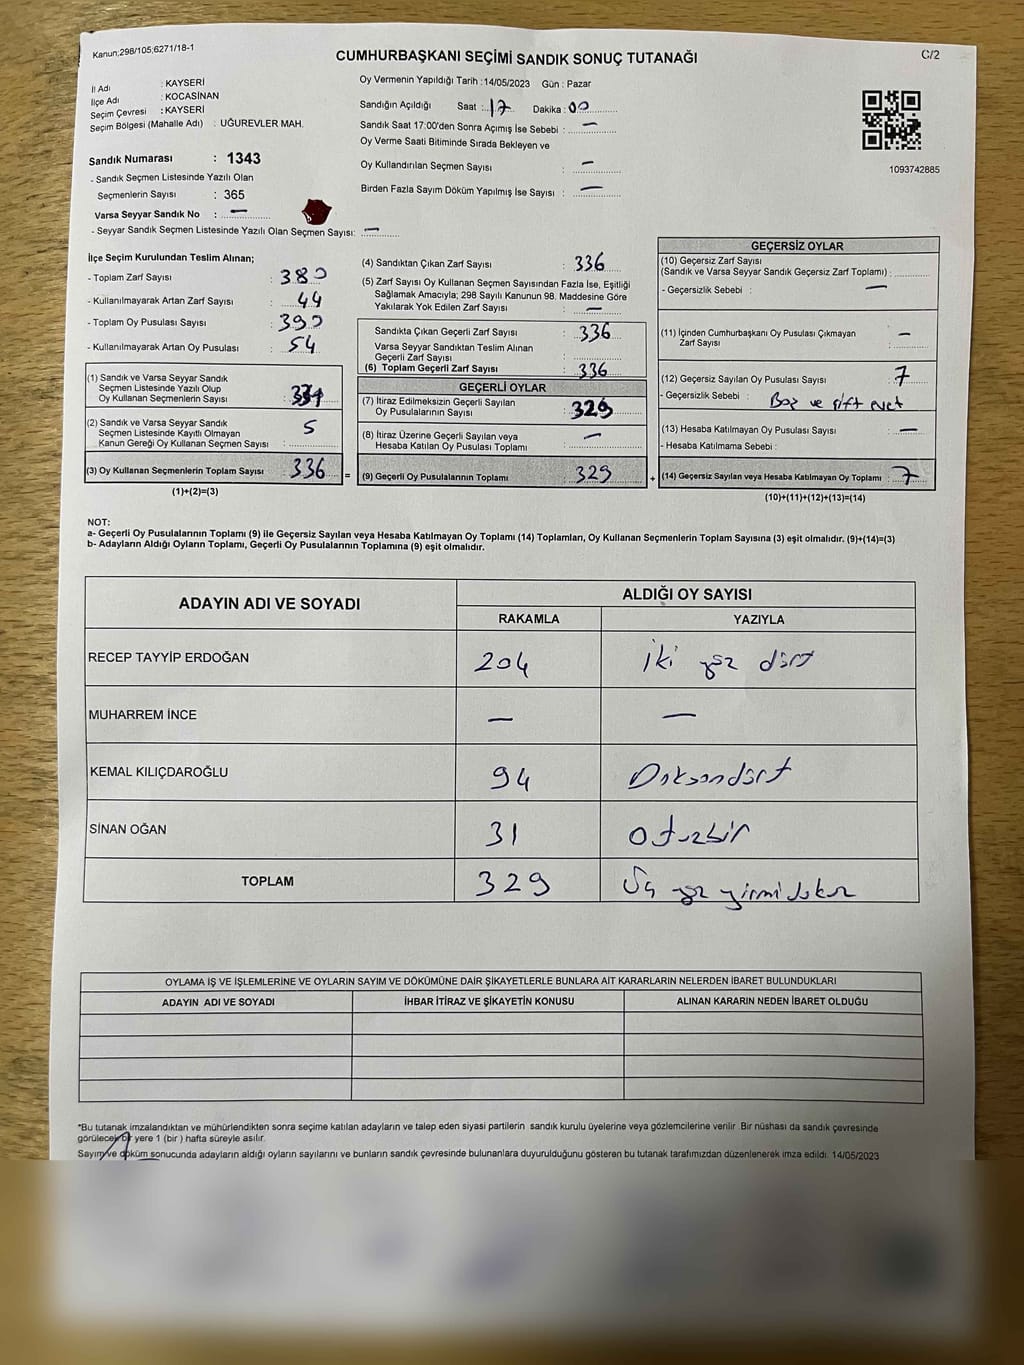 Kanun;298/105;6271/18-1
CUMHURBAŞKANI SEÇİMİ SANDIK SONUÇ TUTANAĞI
C/2
İl Adı : KAYSERİ
İlçe Adı : KOCASİNAN
Seçim Çevresi : KAYSERİ
Seçim Bölgesi (Mahalle Adı) : UĞUREVLER MAH.
Sandık Numarası : 1343
- Sandık Seçmen Listesinde Yazılı Olan
Seçmenlerin Sayısı : 365
Varsa Seyyar Sandık No : —
- Seyyar Sandık Seçmen Listesinde Yazılı Olan Seçmen Sayısı: —
Oy Vermenin Yapıldığı Tarih : 14/05/2023 Gün : Pazar
Sandığın Açıldığı Saat : 17 Dakika : 00
Sandık Saat 17:00'den Sonra Açımış İse Sebebi : —
Oy Verme Saati Bitiminde Sırada Bekleyen ve
Oy Kullandırılan Seçmen Sayısı : —
Birden Fazla Sayım Döküm Yapılmış İse Sayısı : —
1093742885
İlçe Seçim Kurulundan Teslim Alınan;
- Toplam Zarf Sayısı : 380
- Kullanılmayarak Artan Zarf Sayısı : 44
- Toplam Oy Pusulası Sayısı : 390
- Kullanılmayarak Artan Oy Pusulası : 54
(1) Sandık ve Varsa Seyyar Sandık
Seçmen Listesinde Yazılı Olup
Oy Kullanan Seçmenlerin Sayısı :
(2) Sandık ve Varsa Seyyar Sandık
Seçmen Listesinde Kayıtlı Olmayan
Kanun Gereği Oy Kullanan Seçmen Sayısı : 5
(3) Oy Kullanan Seçmenlerin Toplam Sayısı : 336 =
(1)+(2)=(3)
(4) Sandıktan Çıkan Zarf Sayısı : 336
(5) Zarf Sayısı Oy Kullanan Seçmen Sayısından Fazla İse, Eşitliği
Sağlamak Amacıyla; 298 Sayılı Kanunun 98. Maddesine Göre
Yakılarak Yok Edilen Zarf Sayısı : —
Sandıkta Çıkan Geçerli Zarf Sayısı : 336
Varsa Seyyar Sandıktan Teslim Alınan
Geçerli Zarf Sayısı :
(6) Toplam Geçerli Zarf Sayısı : 336
GEÇERLİ OYLAR
(7) İtiraz Edilmeksizin Geçerli Sayılan
Oy Pusulalarının Sayısı : 329
(8) İtiraz Üzerine Geçerli Sayılan veya
Hesaba Katılan Oy Pusulası Toplamı : —
(9) Geçerli Oy Pusulalarının Toplamı : 329 +
GEÇERSİZ OYLAR
(10) Geçersiz Zarf Sayısı
(Sandık ve Varsa Seyyar Sandık Geçersiz Zarf Toplamı) :
- Geçersizlik Sebebi : —
(11) İçinden Cumhurbaşkanı Oy Pusulası Çıkmayan
Zarf Sayısı : —
(12) Geçersiz Sayılan Oy Pusulası Sayısı : 7
- Geçersizlik Sebebi : Boş ve çift evet
(13) Hesaba Katılmayan Oy Pusulası Sayısı : —
- Hesaba Katılmama Sebebi :
(14) Geçersiz Sayılan veya Hesaba Katılmayan Oy Toplamı : 7
(10)+(11)+(12)+(13)=(14)
NOT:
a- Geçerli Oy Pusulalarının Toplamı (9) ile Geçersiz Sayılan veya Hesaba Katılmayan Oy Toplamı (14) Toplamları, Oy Kullanan Seçmenlerin Toplam Sayısına (3) eşit olmalıdır. (9)+(14)=(3)
b- Adayların Aldığı Oyların Toplamı, Geçerli Oy Pusulalarının Toplamına (9) eşit olmalıdır.
ADAYIN ADI VE SOYADI
ALDIĞI OY SAYISI
RAKAMLA YAZIYLA
RECEP TAYYİP ERDOĞAN 204 iki yüz dört
MUHARREM İNCE — —
KEMAL KILIÇDAROĞLU 94 Doksandört
SİNAN OĞAN 31 otuzbir
TOPLAM 329 Üç yüz yirmidokuz
OYLAMA İŞ VE İŞLEMLERİNE VE OYLARIN SAYIM VE DÖKÜMÜNE DAİR ŞİKAYETLERLE BUNLARA AİT KARARLARIN NELERDEN İBARET BULUNDUKLARI
ADAYIN ADI VE SOYADI İHBAR İTİRAZ VE ŞİKAYETİN KONUSU ALINAN KARARIN NEDEN İBARET OLDUĞU
*Bu tutanak imzalandıktan ve mühürlendikten sonra seçime katılan adayların ve talep eden siyasi partilerin sandık kurulu üyelerine veya gözlemcilerine verilir. Bir nüshası da sandık çevresinde
görülecek bir yere 1 (bir ) hafta süreyle asılır.
Sayım ve döküm sonucunda adayların aldığı oyların sayılarını ve bunların sandık çevresinde bulunanlara duyurulduğunu gösteren bu tutanak tarafımızdan düzenlenerek imza edildi. 14/05/2023